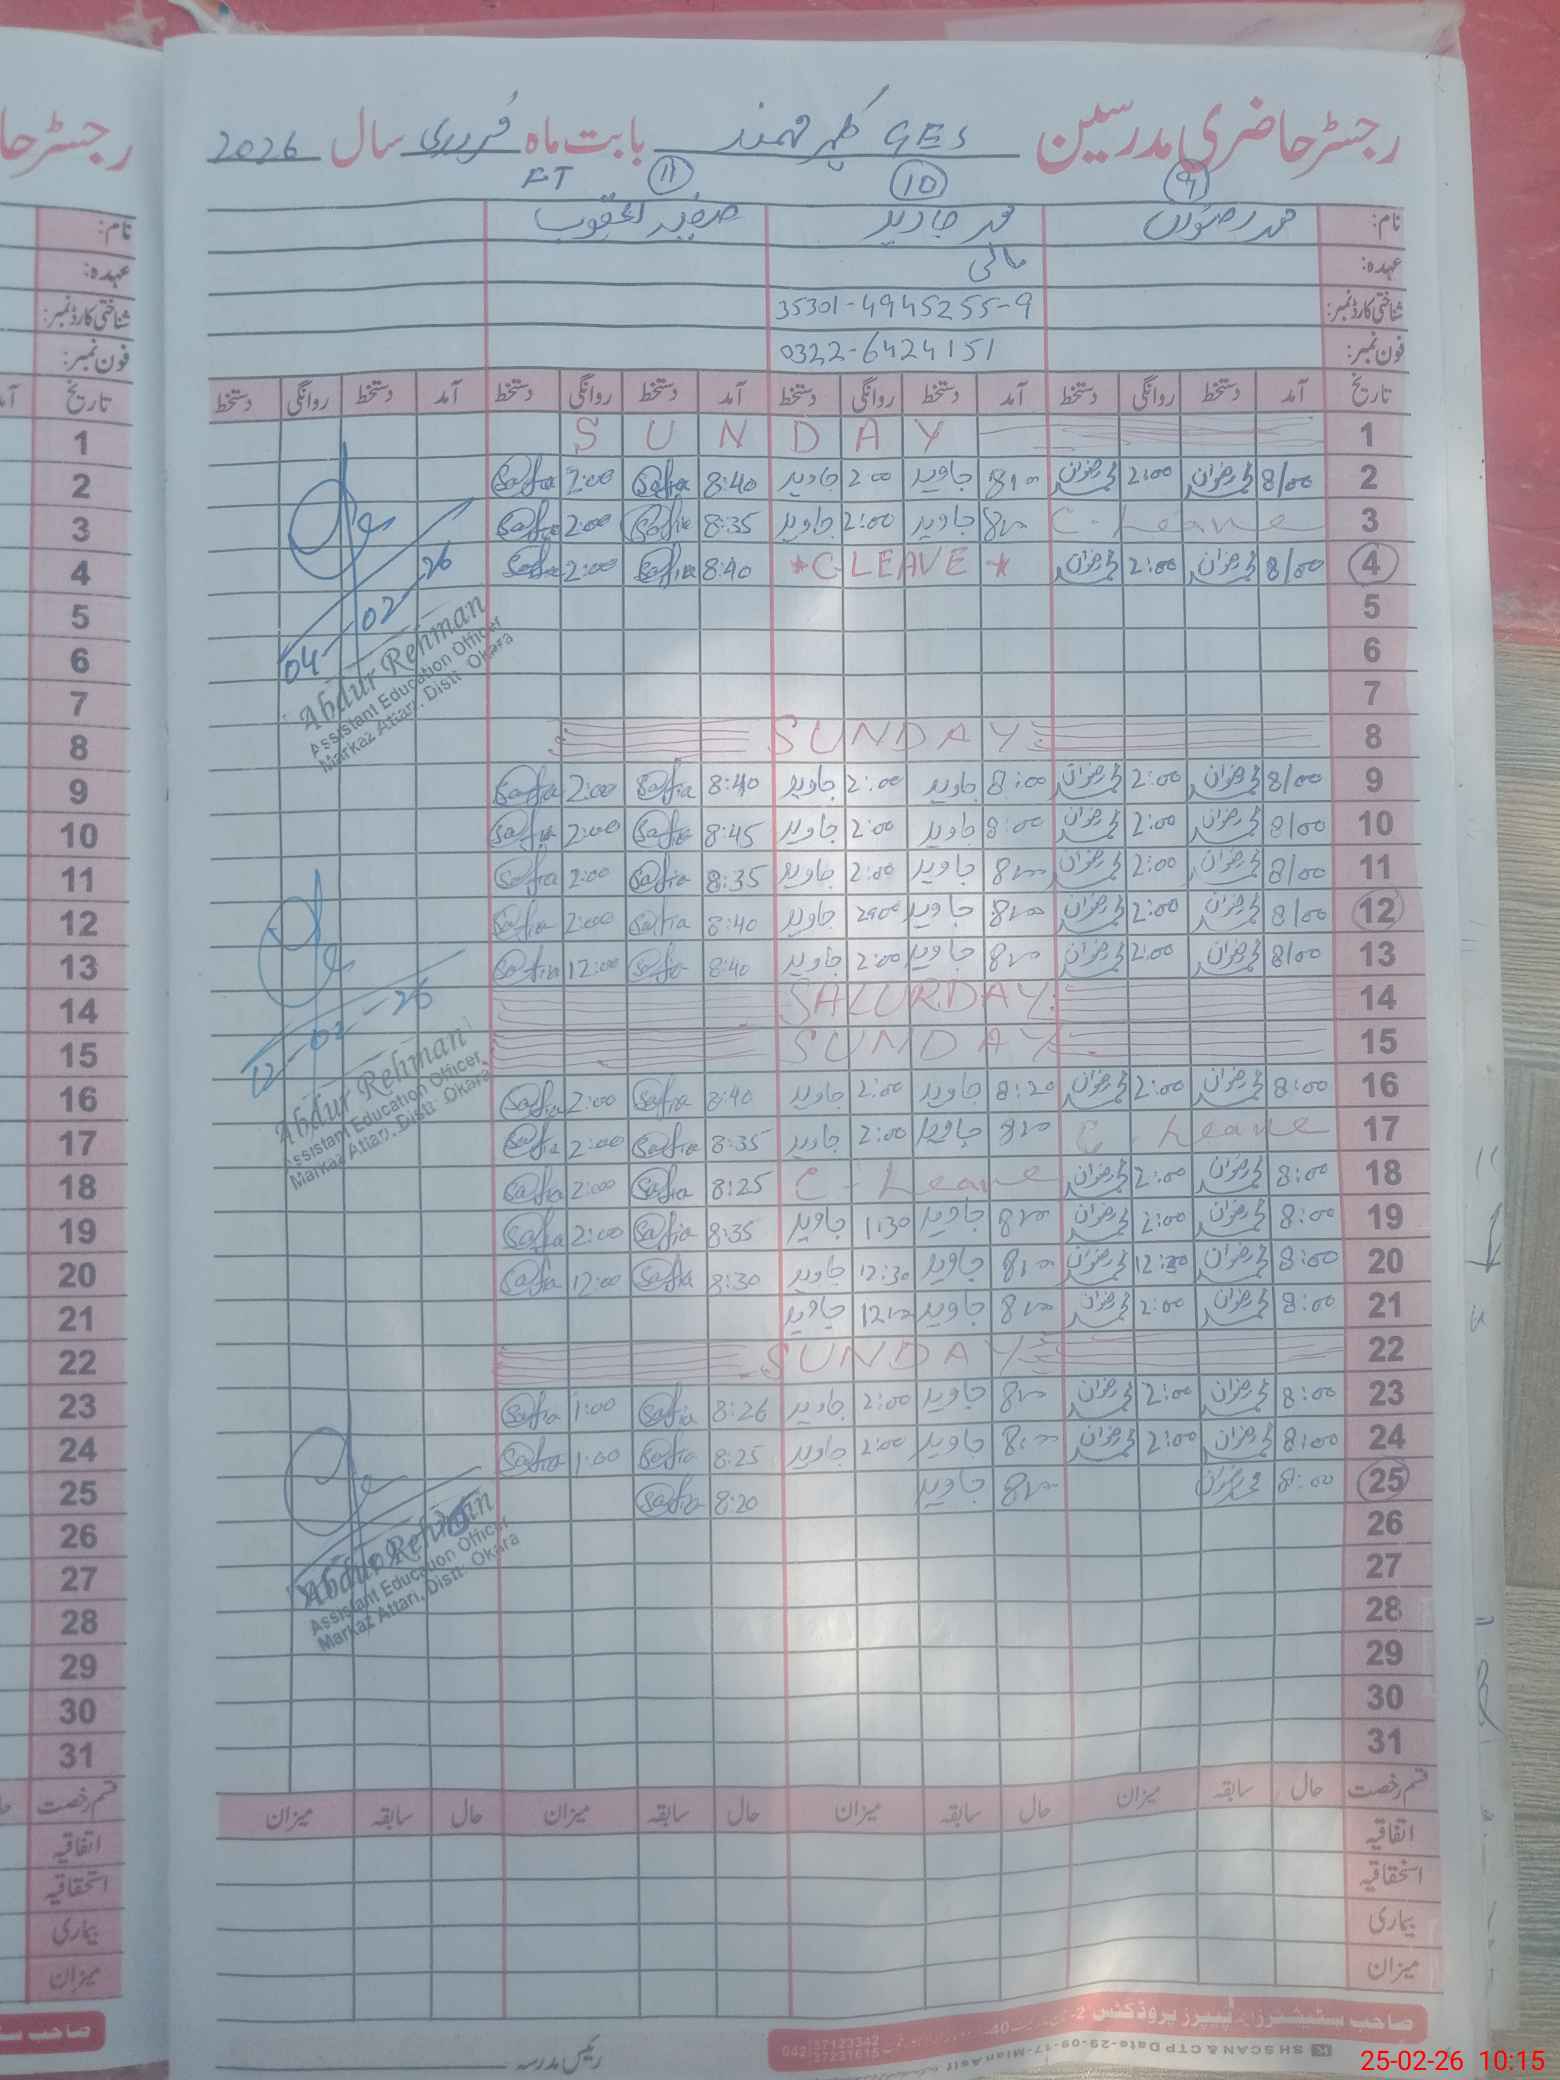 رجسٹر حاضری مدرسین GES کلیر مہمند بابت ماہ فروری سال 2026
9 10 11 FT
نام: محمد رضوان محمد جاوید صفیہ یعقوب
عہدہ: مالی
شناختی کارڈ نمبر: 35301-4945255-9
فون نمبر: 0322-6424151
تاریخ آمد دستخط روانگی دستخط آمد دستخط روانگی دستخط آمد دستخط روانگی دستخط آمد دستخط روانگی دستخط
1 SUNDAY
2 8/00 محمد رضوان 2:00 محمد رضوان 8:00 جاوید 2:00 جاوید 8:40 Safia 2:00 Safia
3 C-Leave 8:00 جاوید 2:00 جاوید 8:35 Safia 2:00 Safia
4 8/00 محمد رضوان 2:00 محمد رضوان *C LEAVE* 8:40 Safia 2:00 Safia
5
6
7
8 SUNDAY
9 8/00 محمد رضوان 2:00 محمد رضوان 8:00 جاوید 2:00 جاوید 8:40 Safia 2:00 Safia
10 8/00 محمد رضوان 2:00 محمد رضوان 8:00 جاوید 2:00 جاوید 8:45 Safia 2:00 Safia
11 8/00 محمد رضوان 2:00 محمد رضوان 8:00 جاوید 2:00 جاوید 8:35 Safia 2:00 Safia
12 8/00 محمد رضوان 2:00 محمد رضوان 8:00 جاوید جاوید 8:40 Safia 2:00 Safia
13 8/00 محمد رضوان 2:00 محمد رضوان 8:00 جاوید 2:00 جاوید 8:40 Safia 12:00 Safia
14 SATURDAY
15 SUNDAY
16 8:00 محمد رضوان 2:00 محمد رضوان 8:20 جاوید 2:00 جاوید 8:40 Safia 2:00 Safia
17 C-Leave 8:00 جاوید 2:00 جاوید 8:35 Safia 2:00 Safia
18 8:00 محمد رضوان 2:00 محمد رضوان C-Leave 8:25 Safia 2:00 Safia
19 8:00 محمد رضوان 2:00 محمد رضوان 8:00 جاوید 1:30 جاوید 8:35 Safia 2:00 Safia
20 8:00 محمد رضوان 12:30 محمد رضوان 8:00 جاوید 12:30 جاوید 8:30 Safia 12:00 Safia
21 8:00 محمد رضوان 2:00 محمد رضوان 8:00 جاوید 12:00 جاوید
22 SUNDAY
23 8:00 محمد رضوان 2:00 محمد رضوان 8:00 جاوید 2:00 جاوید 8:26 Safia 1:00 Safia
24 8:00 محمد رضوان 2:00 محمد رضوان 8:00 جاوید 2:00 جاوید 8:25 Safia 1:00 Safia
25 8:00 محمد رضوان 8:00 جاوید 8:20 Safia
26
27
28
29
30
31
قسم رخصت حال سابقہ میزان حال سابقہ میزان حال سابقہ میزان حال سابقہ میزان
اتفاقیہ
استحقاقیہ
بیماری
میزان
صاحب سٹیشنرز اینڈ پیپرز پروڈکٹس
SH SCAN & CTP Date-29-09-17-Mian Asif
042 37123342
37231615
رئیس مدرسہ
04-02-26
Abdur Rehman
Assistant Education Officer
Markaz Attari, Distt: Okara
12-02-26
Abdur Rehman
Assistant Education Officer
Markaz Attari, Distt: Okara
Abdur Rehman
Assistant Education Officer
Markaz Attari, Distt: Okara
رجسٹر حا
نام:
عہدہ:
شناختی کارڈ نمبر:
فون نمبر:
تاریخ
1
2
3
4
5
6
7
8
9
10
11
12
13
14
15
16
17
18
19
20
21
22
23
24
25
26
27
28
29
30
31
قسم رخصت
اتفاقیہ
استحقاقیہ
بیماری
میزان
25-02-26 10:15